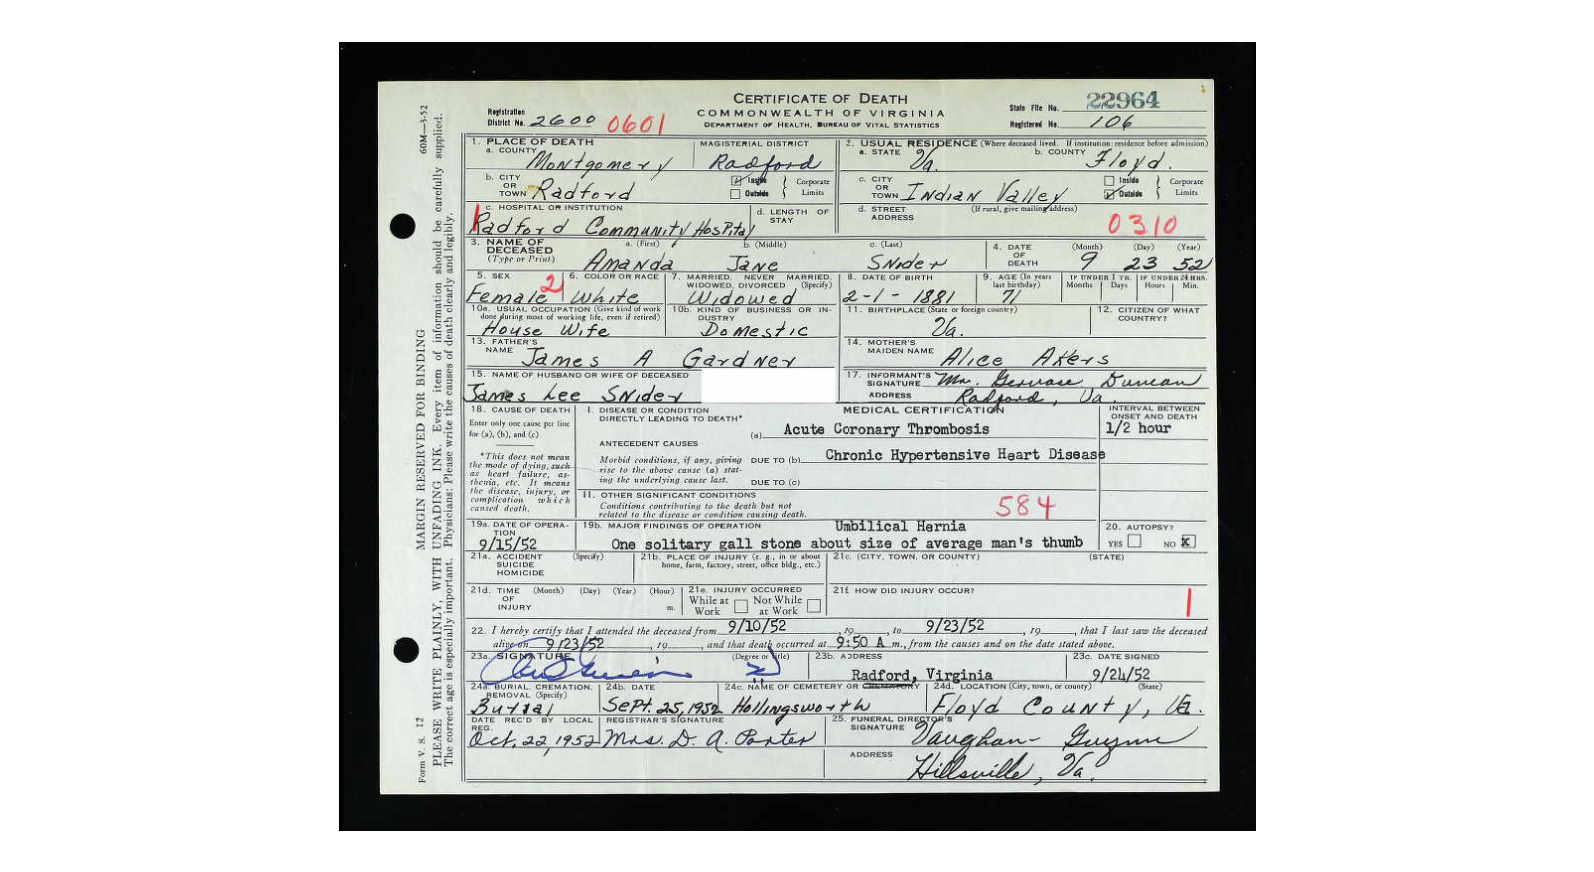 CERTIFICATE OF DEATH
COMMONWEALTH OF VIRGINIA
DEPARTMENT OF HEALTH, BUREAU OF VITAL STATISTICS
Registration District No. 2600 0601
State File No. 22964
Registered No. 106
60M—3-52
MARGIN RESERVED FOR BINDING
PLEASE WRITE PLAINLY, WITH UNFADING INK. Every item of information should be carefully supplied.
The correct age is especially important. Physicians: Please write the causes of death clearly and legibly.
Form V. S. 12
1. PLACE OF DEATH
a. COUNTY Montgomery
MAGISTERIAL DISTRICT Radford
2. USUAL RESIDENCE (Where deceased lived. If institution: residence before admission)
a. STATE Va. b. COUNTY Floyd.
b. CITY OR TOWN Radford
Inside Outside Corporate Limits
c. CITY OR TOWN Indian Valley
Inside Outside Corporate Limits
c. HOSPITAL OR INSTITUTION
Radford Community Hospital
d. LENGTH OF STAY
d. STREET ADDRESS (If rural, give mailing address)
0310
3. NAME OF DECEASED (Type or Print)
a. (First) b. (Middle) c. (Last)
Amanda Jane Snider
4. DATE OF DEATH (Month) (Day) (Year)
9 23 52
5. SEX 2
Female
6. COLOR OR RACE
White
7. MARRIED, NEVER MARRIED, WIDOWED, DIVORCED (Specify)
Widowed
8. DATE OF BIRTH
2-1-1881
9. AGE (In years last birthday)
71
IF UNDER 1 YR. Months Days
IF UNDER 24 HRS. Hours Min.
10a. USUAL OCCUPATION (Give kind of work done during most of working life, even if retired)
House Wife
10b. KIND OF BUSINESS OR INDUSTRY
Domestic
11. BIRTHPLACE (State or foreign country)
Va.
12. CITIZEN OF WHAT COUNTRY?
13. FATHER'S NAME James A Gardner
14. MOTHER'S MAIDEN NAME Alice Akers
15. NAME OF HUSBAND OR WIFE OF DECEASED
James Lee Snider
17. INFORMANT'S SIGNATURE Mrs. Gervase Duncan
ADDRESS Radford, Va.
18. CAUSE OF DEATH
Enter only one cause per line for (a), (b), and (c)
*This does not mean the mode of dying, such as heart failure, asthenia, etc. It means the disease, injury, or complication which caused death.
MEDICAL CERTIFICATION
INTERVAL BETWEEN ONSET AND DEATH
I. DISEASE OR CONDITION DIRECTLY LEADING TO DEATH*
(a) Acute Coronary Thrombosis 1/2 hour
ANTECEDENT CAUSES
Morbid conditions, if any, giving rise to the above cause (a) stating the underlying cause last.
DUE TO (b) Chronic Hypertensive Heart Disease
DUE TO (c)
II. OTHER SIGNIFICANT CONDITIONS
Conditions contributing to the death but not related to the disease or condition causing death.
584
19a. DATE OF OPERATION
9/15/52
19b. MAJOR FINDINGS OF OPERATION Umbilical Hernia
One solitary gall stone about size of average man's thumb
20. AUTOPSY?
YES NO X
21a. ACCIDENT SUICIDE HOMICIDE (Specify)
21b. PLACE OF INJURY (e. g., in or about home, farm, factory, street, office bldg., etc.)
21c. (CITY, TOWN, OR COUNTY) (STATE)
21d. TIME OF INJURY (Month) (Day) (Year) (Hour) m.
21e. INJURY OCCURRED
While at Work Not While at Work
21f. HOW DID INJURY OCCUR?
1
22. I hereby certify that I attended the deceased from 9/10/52, 19, to 9/23/52, 19, that I last saw the deceased
alive on 9/23/52, 19, and that death occurred at 9:50 A m., from the causes and on the date stated above.
23a. SIGNATURE (Degree or title)
23b. ADDRESS
Radford, Virginia
23c. DATE SIGNED
9/24/52
24a. BURIAL, CREMATION, REMOVAL (Specify)
Burial
24b. DATE
Sept. 25, 1952
24c. NAME OF CEMETERY OR CREMATORY
Hollingsworth
24d. LOCATION (City, town, or county) (State)
Floyd County, Va.
DATE REC'D BY LOCAL REG.
Oct. 22, 1952
REGISTRAR'S SIGNATURE
Mrs. D. A. Porter
25. FUNERAL DIRECTOR'S SIGNATURE Vaughan-Guynn
ADDRESS Hillsville, Va.